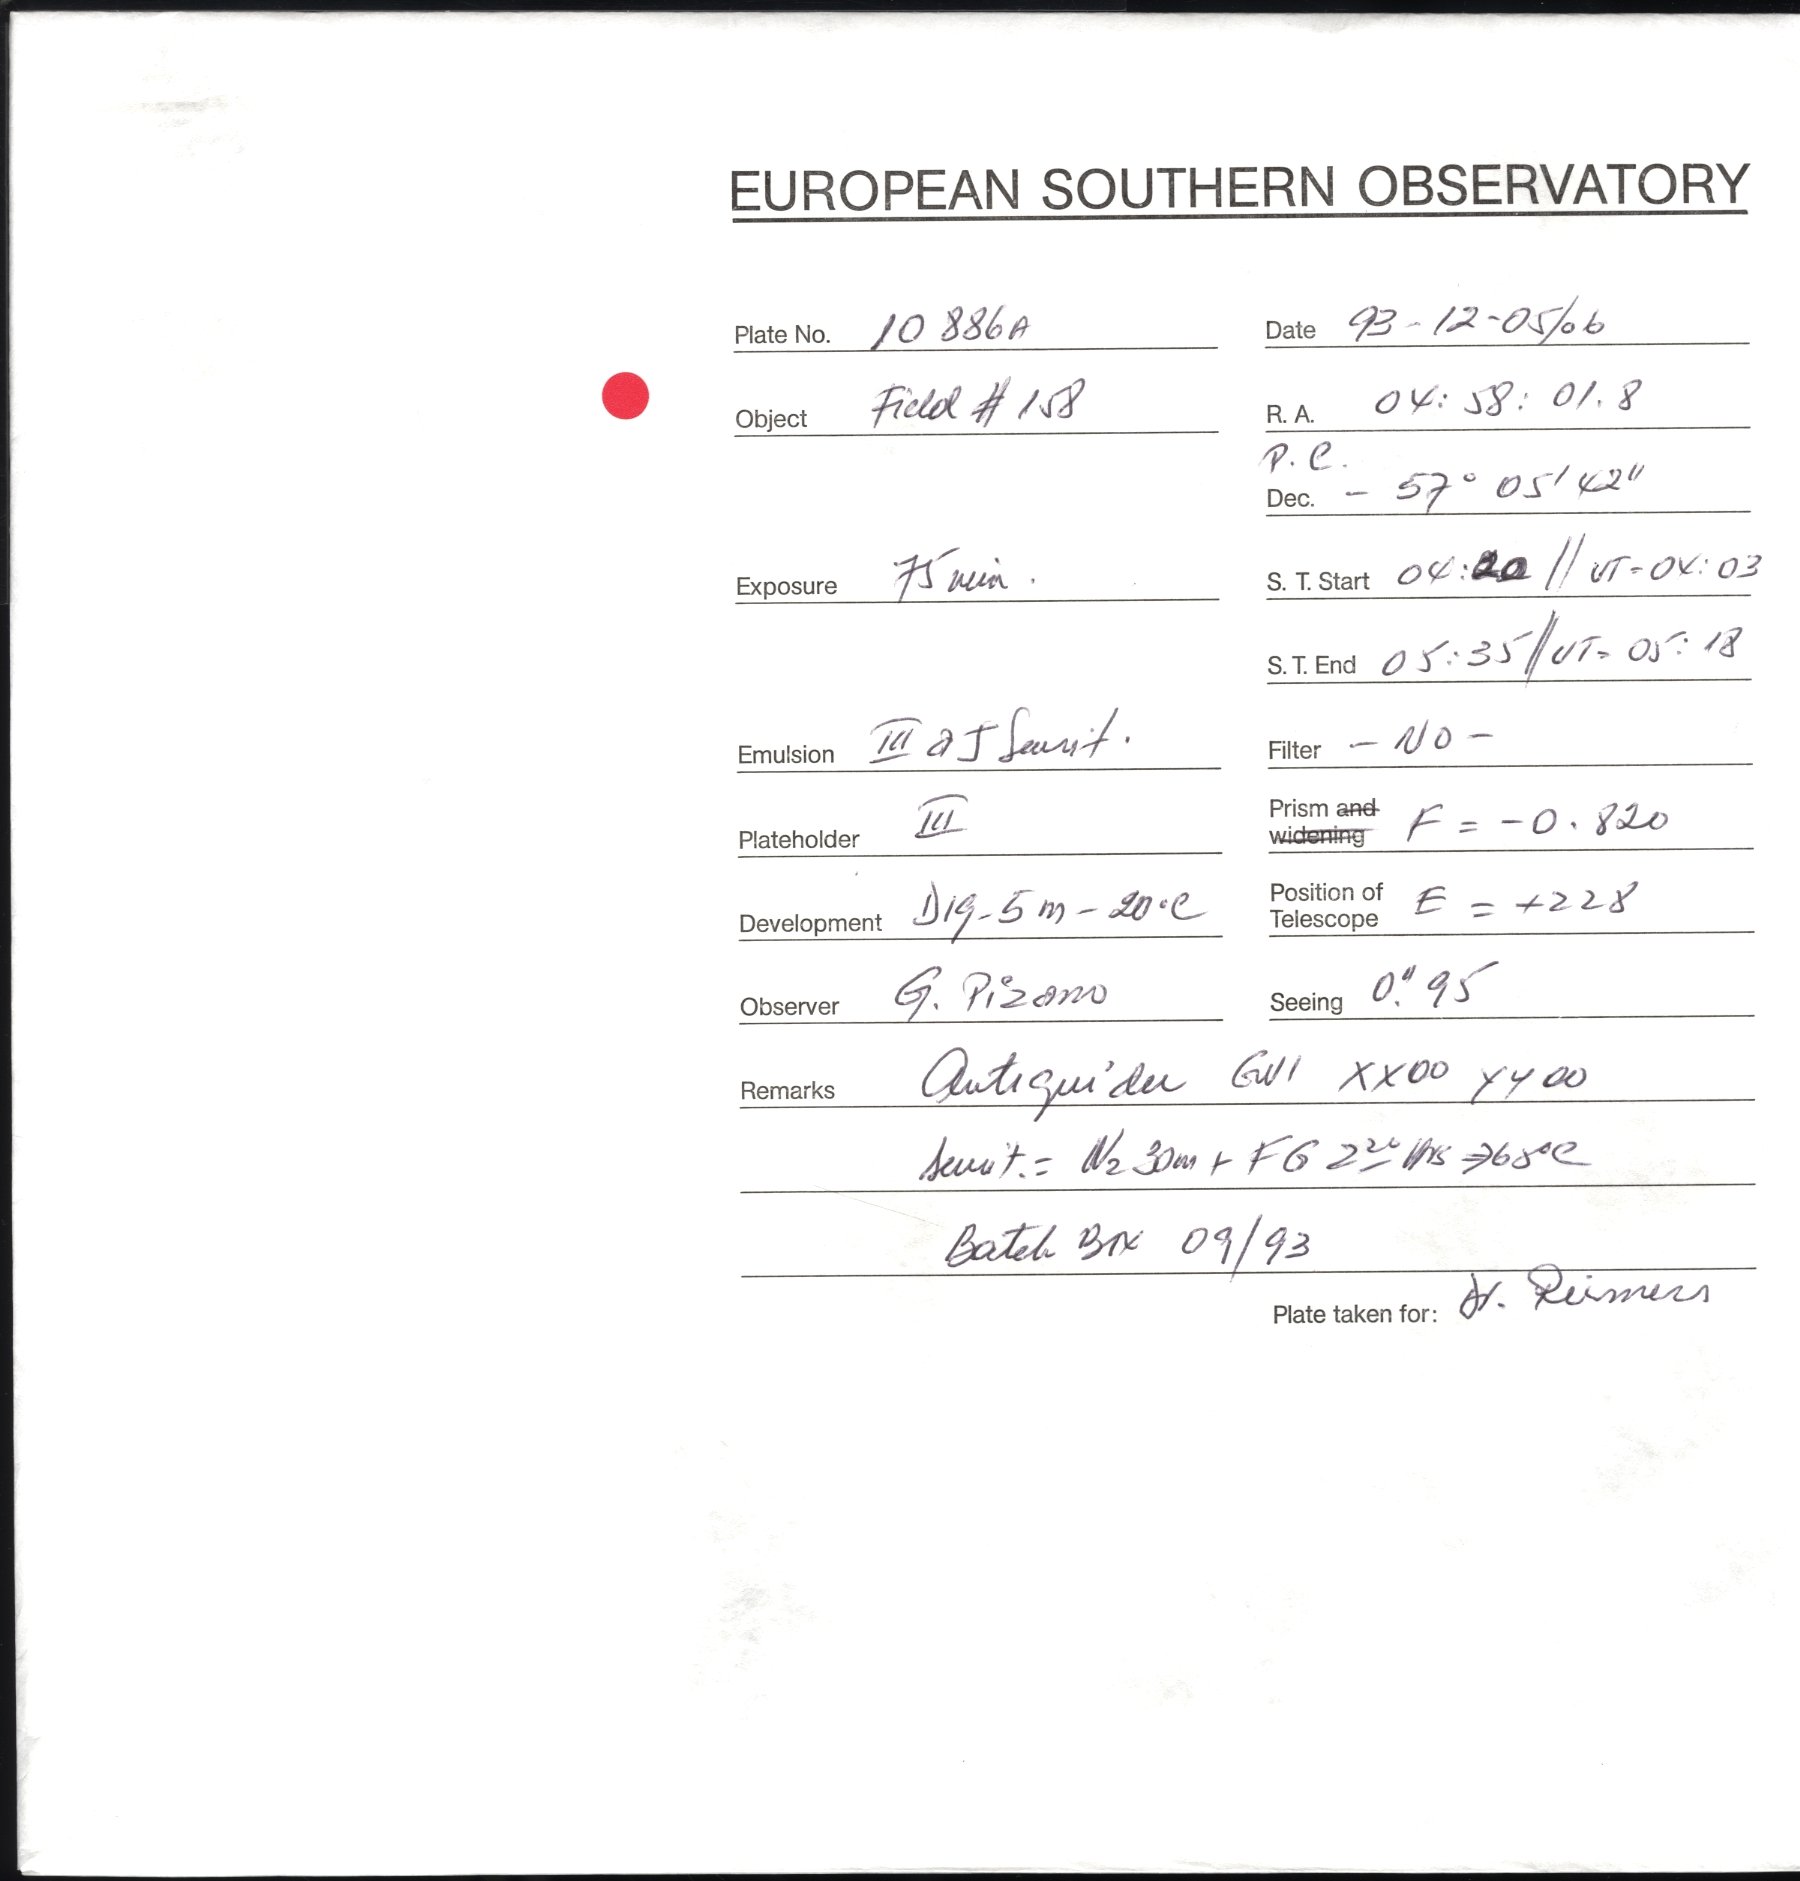 EUROPEAN SOUTHERN OBSERVATORY
Plate No. 10 886A
Date 93-12-05/06
Object Field # 158
R. A. 04: 58: 01.8
P. C.
Dec. - 57° 05' 42"
Exposure 75 min.
S. T. Start 04:20 // UT=04:03
S. T. End 05:35 // UT= 05:18
Emulsion III a J Sensit.
Filter - NO -
Plateholder III
Prism and widening F = -0.820
Development D19-5m-20°C
Position of Telescope E = +228
Observer G. Pizarro
Seeing 0."95
Remarks Autoguider GW1 XX00 YY00
Sensit.= N2 30m + FG 2 hrs 68°C
Batch Box 09/93
Plate taken for: Dr. Reimers